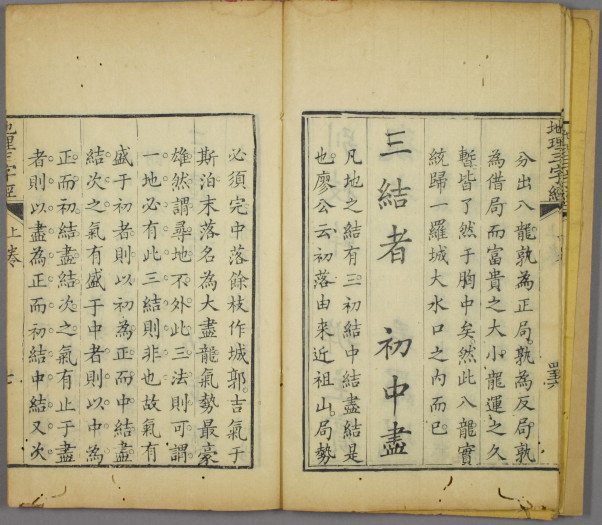 地理三字經
分出八龍孰為正局孰為反局孰
為借局而富貴之大小龍運之久
暫皆了然于胸中矣然此八龍實
統歸一羅城大水口之內而已
三結者 初中盡
凡地之結有三初結中結盡結是
也廖公云初落由来近祖山局勢
必須完中落餘枝作城郭吉氣于
斯泊末落名為大盡龍氣勢最豪
雄然謂尋地不外此三法則可謂
一地必有此三結則非也故氣有
盛于初者則以初為正而中結盡
結次之氣有盛于中者則以中為
正而初結盡結次之氣有止于盡
者則以盡為正而初結中結又次
地理三字經
上卷